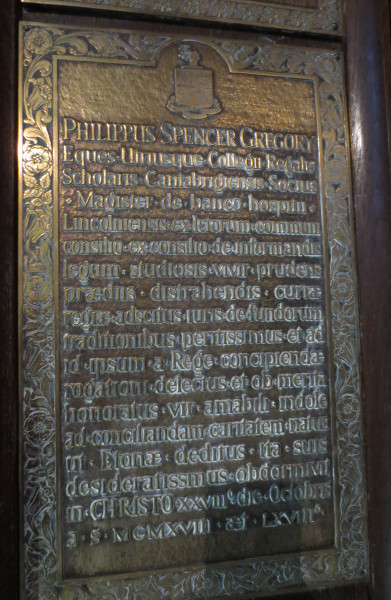 PHILIPPUS SPENCER GREGORY
Eques · Utriusque · Collegii · Regalis
Scholaris · Cantabrigiensis · Socius
· Magister · de · banco · hospitii ·
Lincolniensis · ex · lectorum · communi
consilio · ex · consilio · de · informandis
legum · studiosis · vivir · prudens
prædiis · distrahendis · curiæ
regiæ · adscitus · iuris · de · fundorum
traditionibus · peritissimus · et · ad
id · ipsum · a · Rege · concipiendæ
rogationi · delectus · et · ob · merita
honoratus · vir · amabili · indole
ad · conciliandam · caritatem · natus
ut · Etonæ · deditus · ita · suis
desideratissimus · obdormivit
in · CHRISTO XXVIII · die · Octobris
a · S · MCMXVIII · æt · LXVII